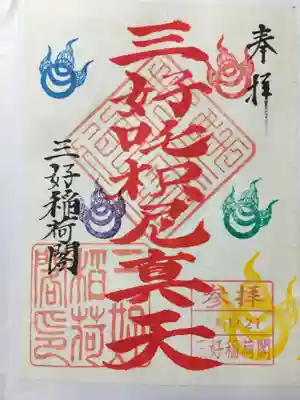 奉拝
三好吒枳尼真天
三好稲荷閣
参拝
1.21
三好稲荷閣